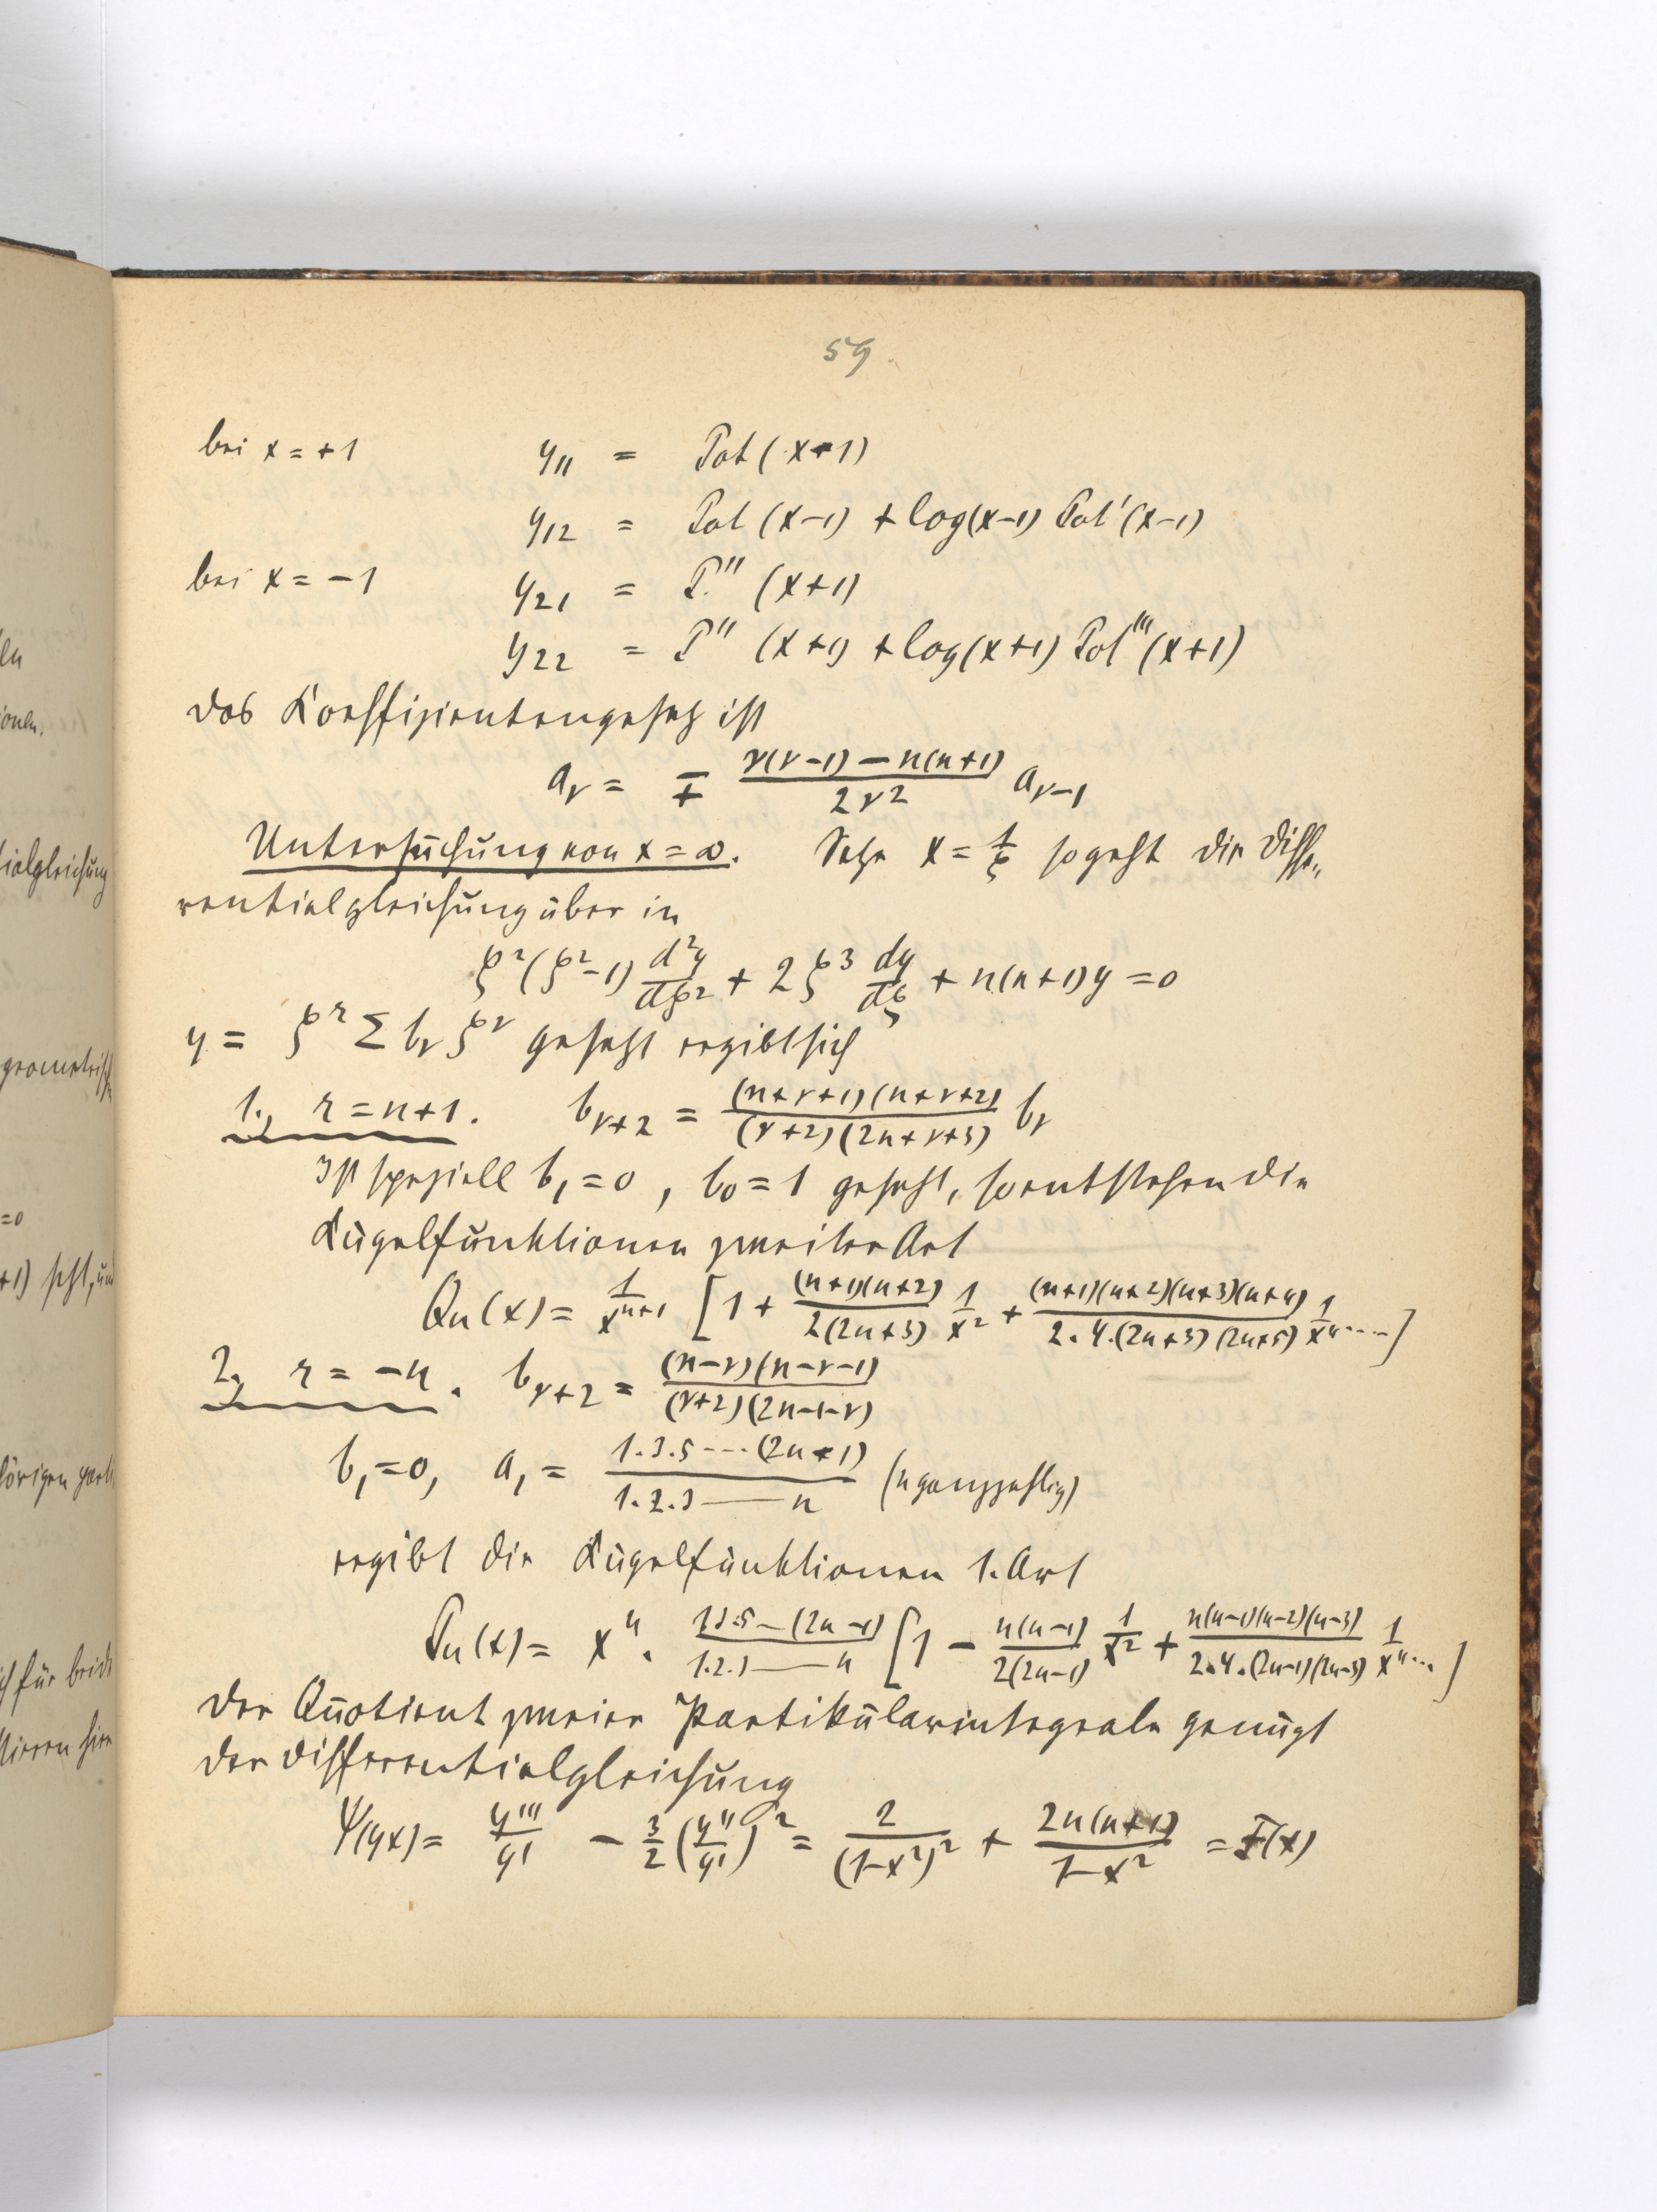 59.
bei x = +1   y₁₁ = Pot (x-1)
y₁₂ = Pot (x-1) + log(x-1) Pot'(x-1)
bei x = -1   y₂₁ = P.'' (x+1)
y₂₂ = P'' (x+1) + log(x+1) Pot'''(x+1)
Das Koeffizientengesetz ist
a_ν = ∓ \frac{ν(ν-1) - n(n+1)}{2ν²} a_{ν-1}
Untersuchung von x = ∞. Setze x = \frac{1}{ξ} so geht die Diffe„
rentialgleichung über in
ξ²(ξ²-1) \frac{d²y}{dξ²} + 2ξ³ \frac{dy}{dξ} + n(n+1)y = 0
y = ξ^r Σ b_ν ξ^ν gesetzt ergibt sich
1., r = n+1.   b_{ν+2} = \frac{(n+ν+1)(n+ν+2)}{(ν+2)(2n+ν+3)} b_ν
Ist speziell b₁ = 0, b₀ = 1 gesetzt, so entstehen die
Kugelfunktionen zweiter Art
Qn(x) = \frac{1}{x^{n+1}} [1 + \frac{(n+1)(n+2)}{2(2n+3)} \frac{1}{x²} + \frac{(n+1)(n+2)(n+3)(n+4)}{2.4.(2n+3)(2n+5)} \frac{1}{x⁴} ....]
2., r = -n.   b_{ν+2} = \frac{(n-ν)(n-ν-1)}{(ν+2)(2n-1-ν)}
b₁ = 0, a₁ = \frac{1.3.5 --- (2n-1)}{1.2.3 —— n} (n ganzzahlig)
ergibt die Kugelfunktionen 1. Art
Pn(x) = xⁿ . \frac{1.3.5 – (2n-1)}{1.2.3 —— n} [1 - \frac{n(n-1)}{2(2n-1)} \frac{1}{x²} + \frac{n(n-1)(n-2)(n-3)}{2.4.(2n-1)(2n-3)} \frac{1}{x⁴} ...]
Der Quotient zweier Partikularintegrale genügt
der Differentialgleichung
Ψ(yx) = \frac{y'''}{y'} - \frac{3}{2} (\frac{y''}{y'})² = \frac{2}{(1-x²)²} + \frac{2n(n+1)}{1-x²} = F(x)